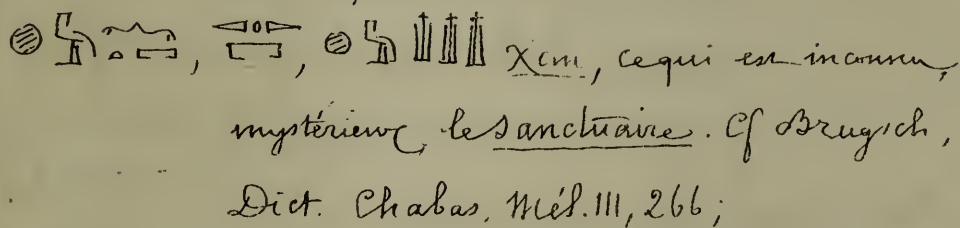 , , χem, ce qui est inconnu,
mystérieux, le sanctuaire. Cf Brugsch,
Dict. Chabas, Mél. III, 266;